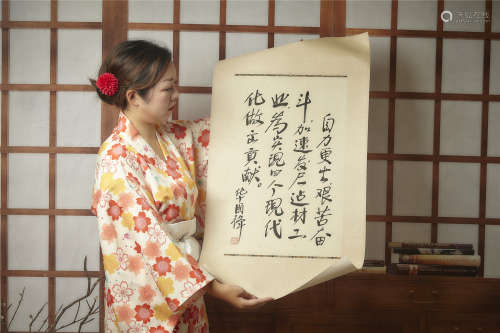 自力更生艰苦奋
斗加速发展建材工
业为实现四个现代
化做出贡献。
华国锋